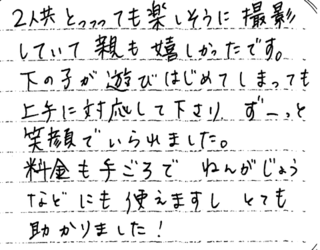 2人共 とっっっても楽しそうに 撮影
していて 親も 嬉しかったです。
下の子が 遊びはじめてしまっても
上手に対応して下さり ずーっと
笑顔でいられました。
料金も手ごろで ねんがじょう
などにも 使えますし とても
助かりました！